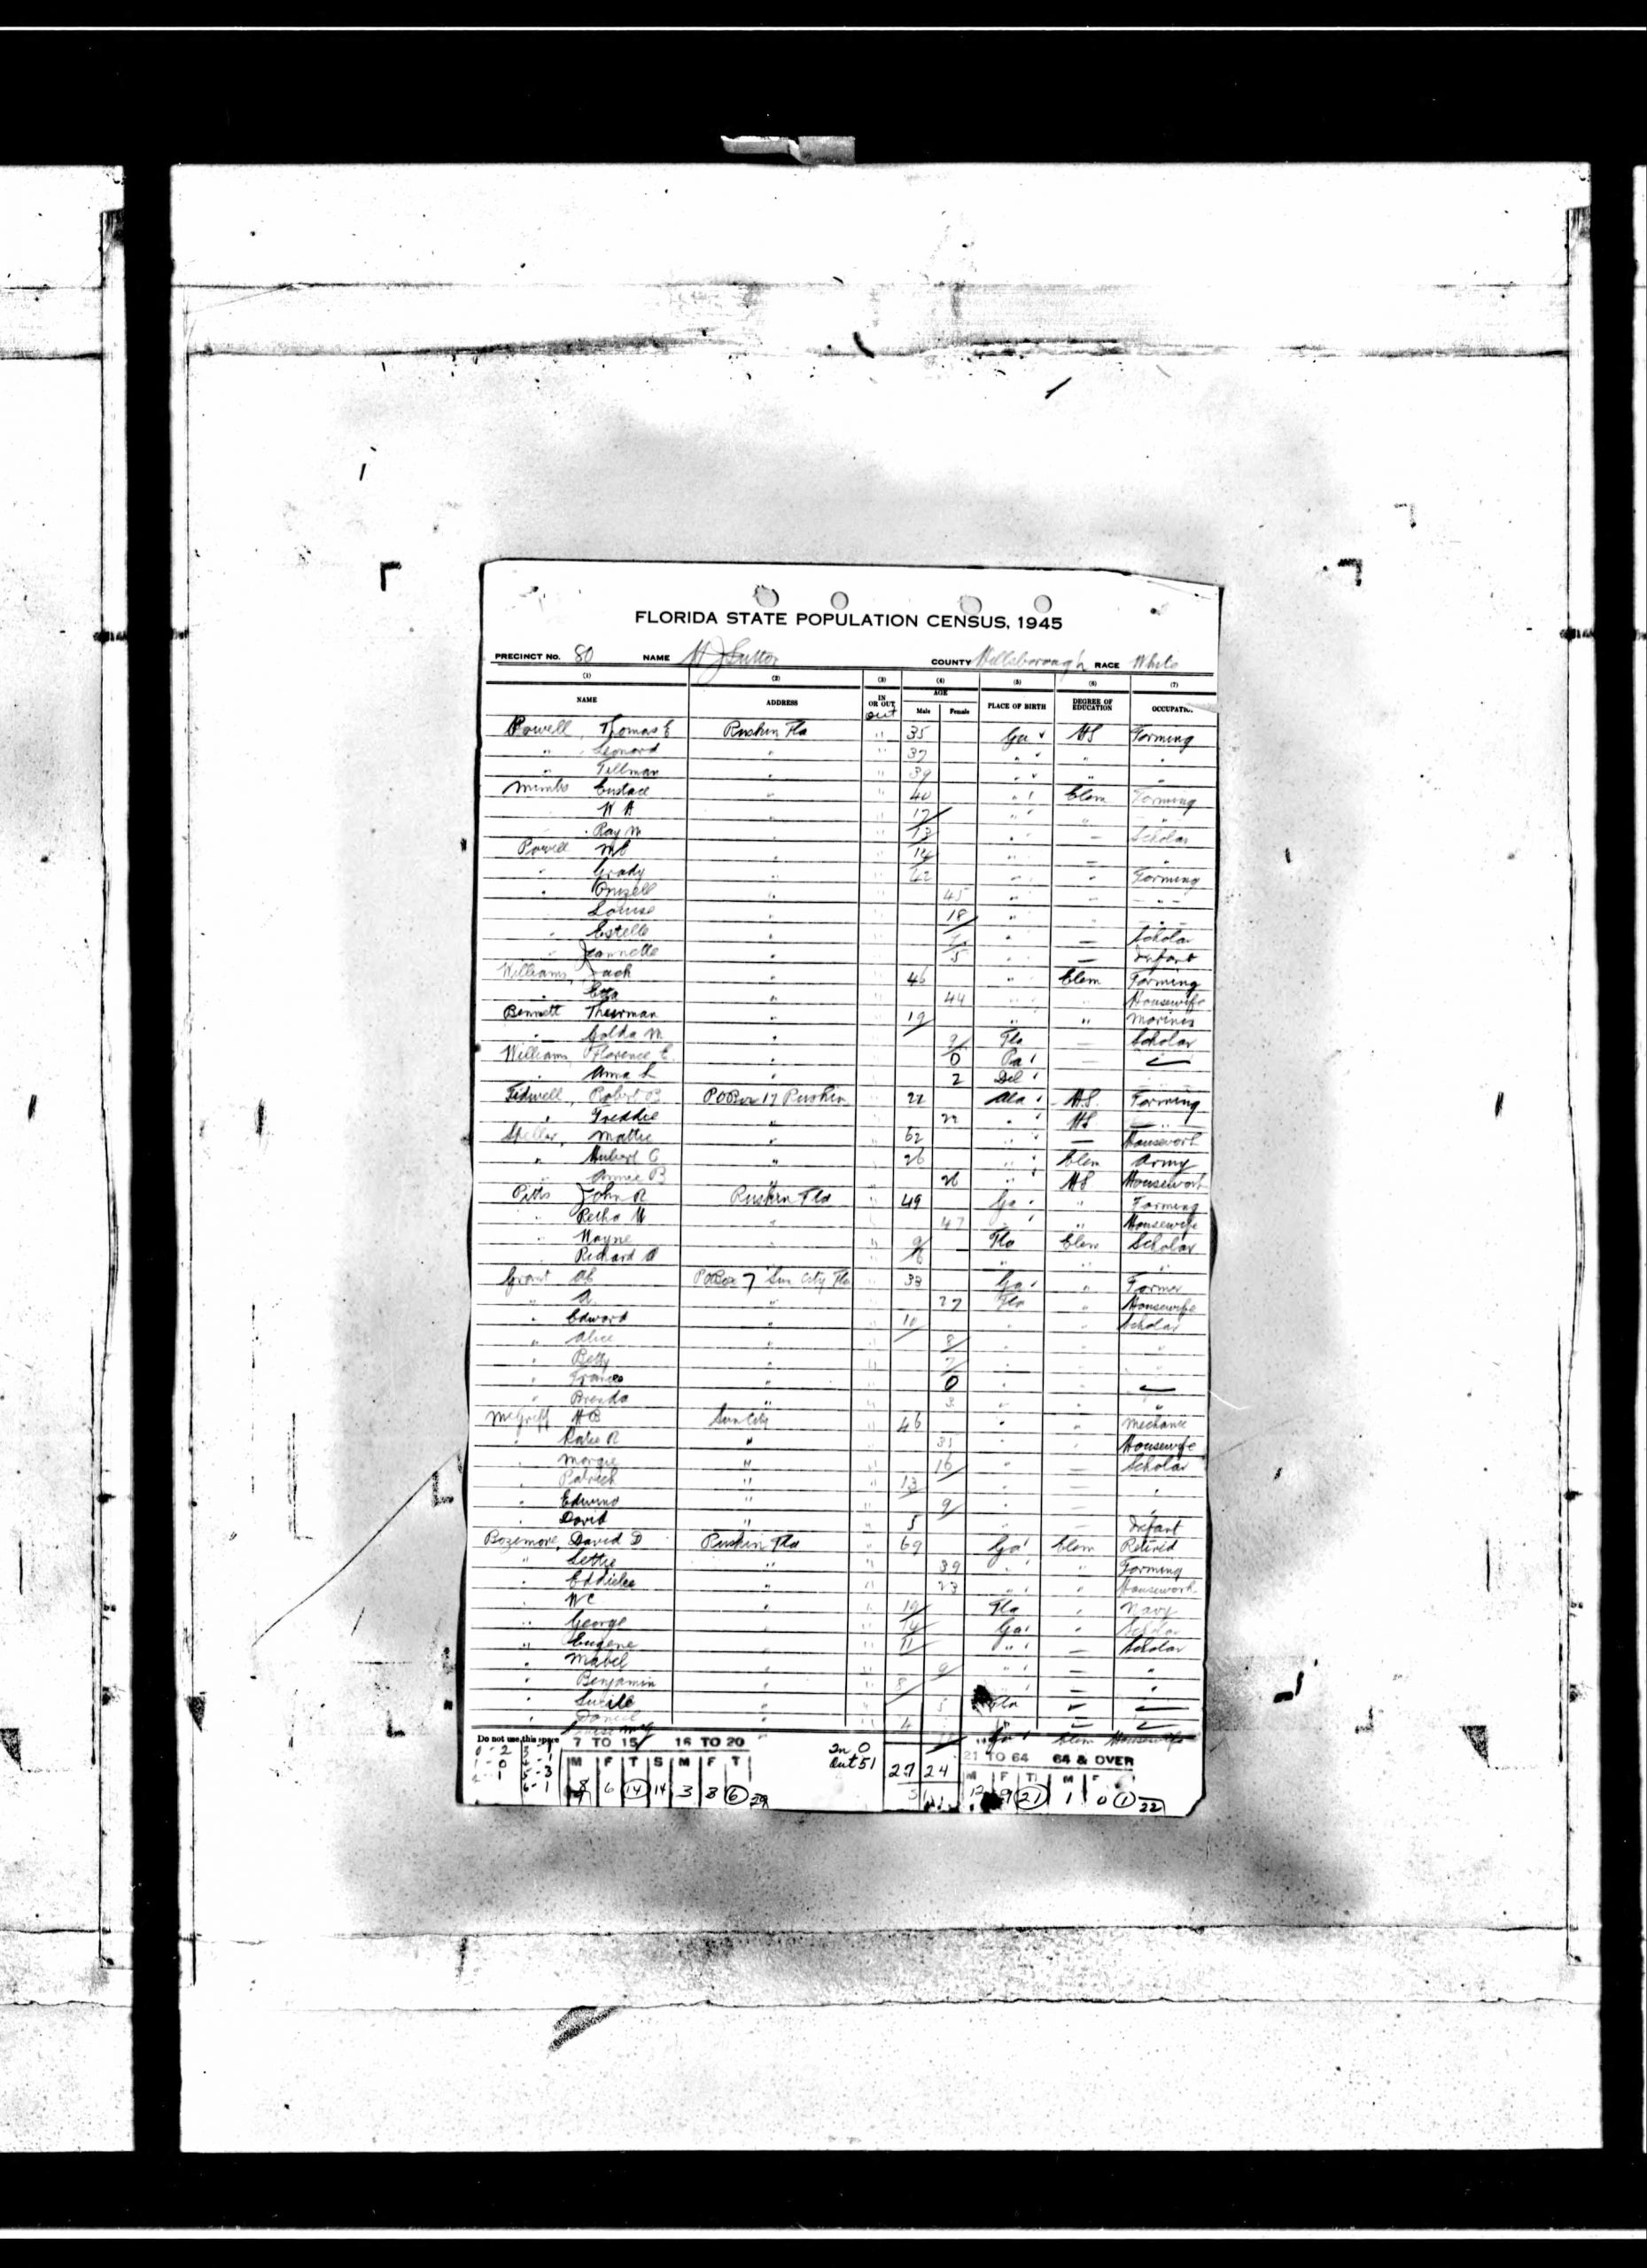 FLORIDA STATE POPULATION CENSUS, 1945
PRECINCT NO. 80 NAME W J Sutton COUNTY Hillsborough RACE White
(1) (2) (3) (4) (5) (6) (7)
NAME ADDRESS IN OR OUT AGE Male Female PLACE OF BIRTH DEGREE OF EDUCATION OCCUPATIO
out
Powell, Thomas E Ruskin Fla " 35 Ga HS Farming
" Leonard " " 37 " " "
" Tillman " " 39 " " "
Mimbs Eustace " " 40 " Elem Farming
W A " " 17 " " "
Ray M " " 13 " — Scholar
Powell " " 14 " — "
" Grady " " 42 " " Farming
" " " 45 " " "
Louise " " 18 " " "
" Estelle " " " — Scholar
" Jeannette " " 5 " — Infant
Williams, Jack " " 46 " Elem Farming
" Etta " " 44 " " Housewife
Bennett Thurman " " 19 " " Marines
" Golda M " " 9 Fla — Scholar
Williams Florence E. " " 0 Pa —
" Anna L " " 2 Del
Tidwell, Robert B PO Box 17 Ruskin " 22 Ala HS. Farming
" Freddie " " 22 " HS "
Mattie " " 62 " — Housework
" Hubert C " " 26 " Elem Army
" Annie B " " 26 " HS Housework
Pitts John R Ruskin Fla " 49 Ga " Farming
" Retha M " " 47 " " Housewife
" Wayne " " 9 Fla Elem Scholar
Richard A " " 6 " " "
Grant PO Box 7 Sun City Fla " 33 Ga " Farmer
" " " 27 Fla " Housewife
" Edward " " 10 " " Scholar
" Alice " " 8 " " "
" Betty " " 7 " " "
" Frances " " 0 " "
" Brenda " " 3 " " "
McGriff H B Sun City " 46 " " Mechanic
" Katie R " " 35 " " Housewife
" Margie " " 16 " — Scholar
" Patrick " " 13 " — "
" Edwina " " 9 " — "
" David " " 5 " — Infant
Bozemore, David D Ruskin Fla " 69 Ga Elem Retired
" Lettie " " 39 " " Farming
" Eddielee " " 23 " " Housework
" W C " " 19 Fla " Navy
" George " " 14 Ga " Scholar
" Eugene " " 11 " — Scholar
" Mabel " " 9 " — "
" Benjamin " " 8 " — "
" Lucille " " 5 Fla
" " " 4 "
Louise Ga Elem Housewife
Do not use this space 7 TO 15 16 TO 20 In 0 Out 51 27 24 21 TO 64 64 & OVER
0-2 3-1
1-0 4-1
2-1 5-3
6-1
M F T S M F T M F T M F
8 6 14 14 3 3 6 20 12 9 21 1 0 1 22